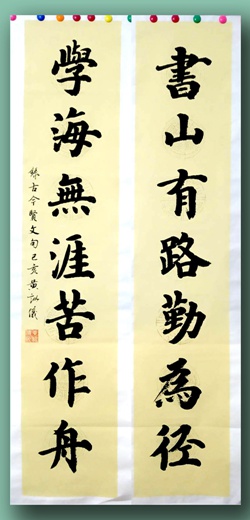 書山有路勤為徑
學海無涯苦作舟
錄古今賢文句己亥黃詠儀